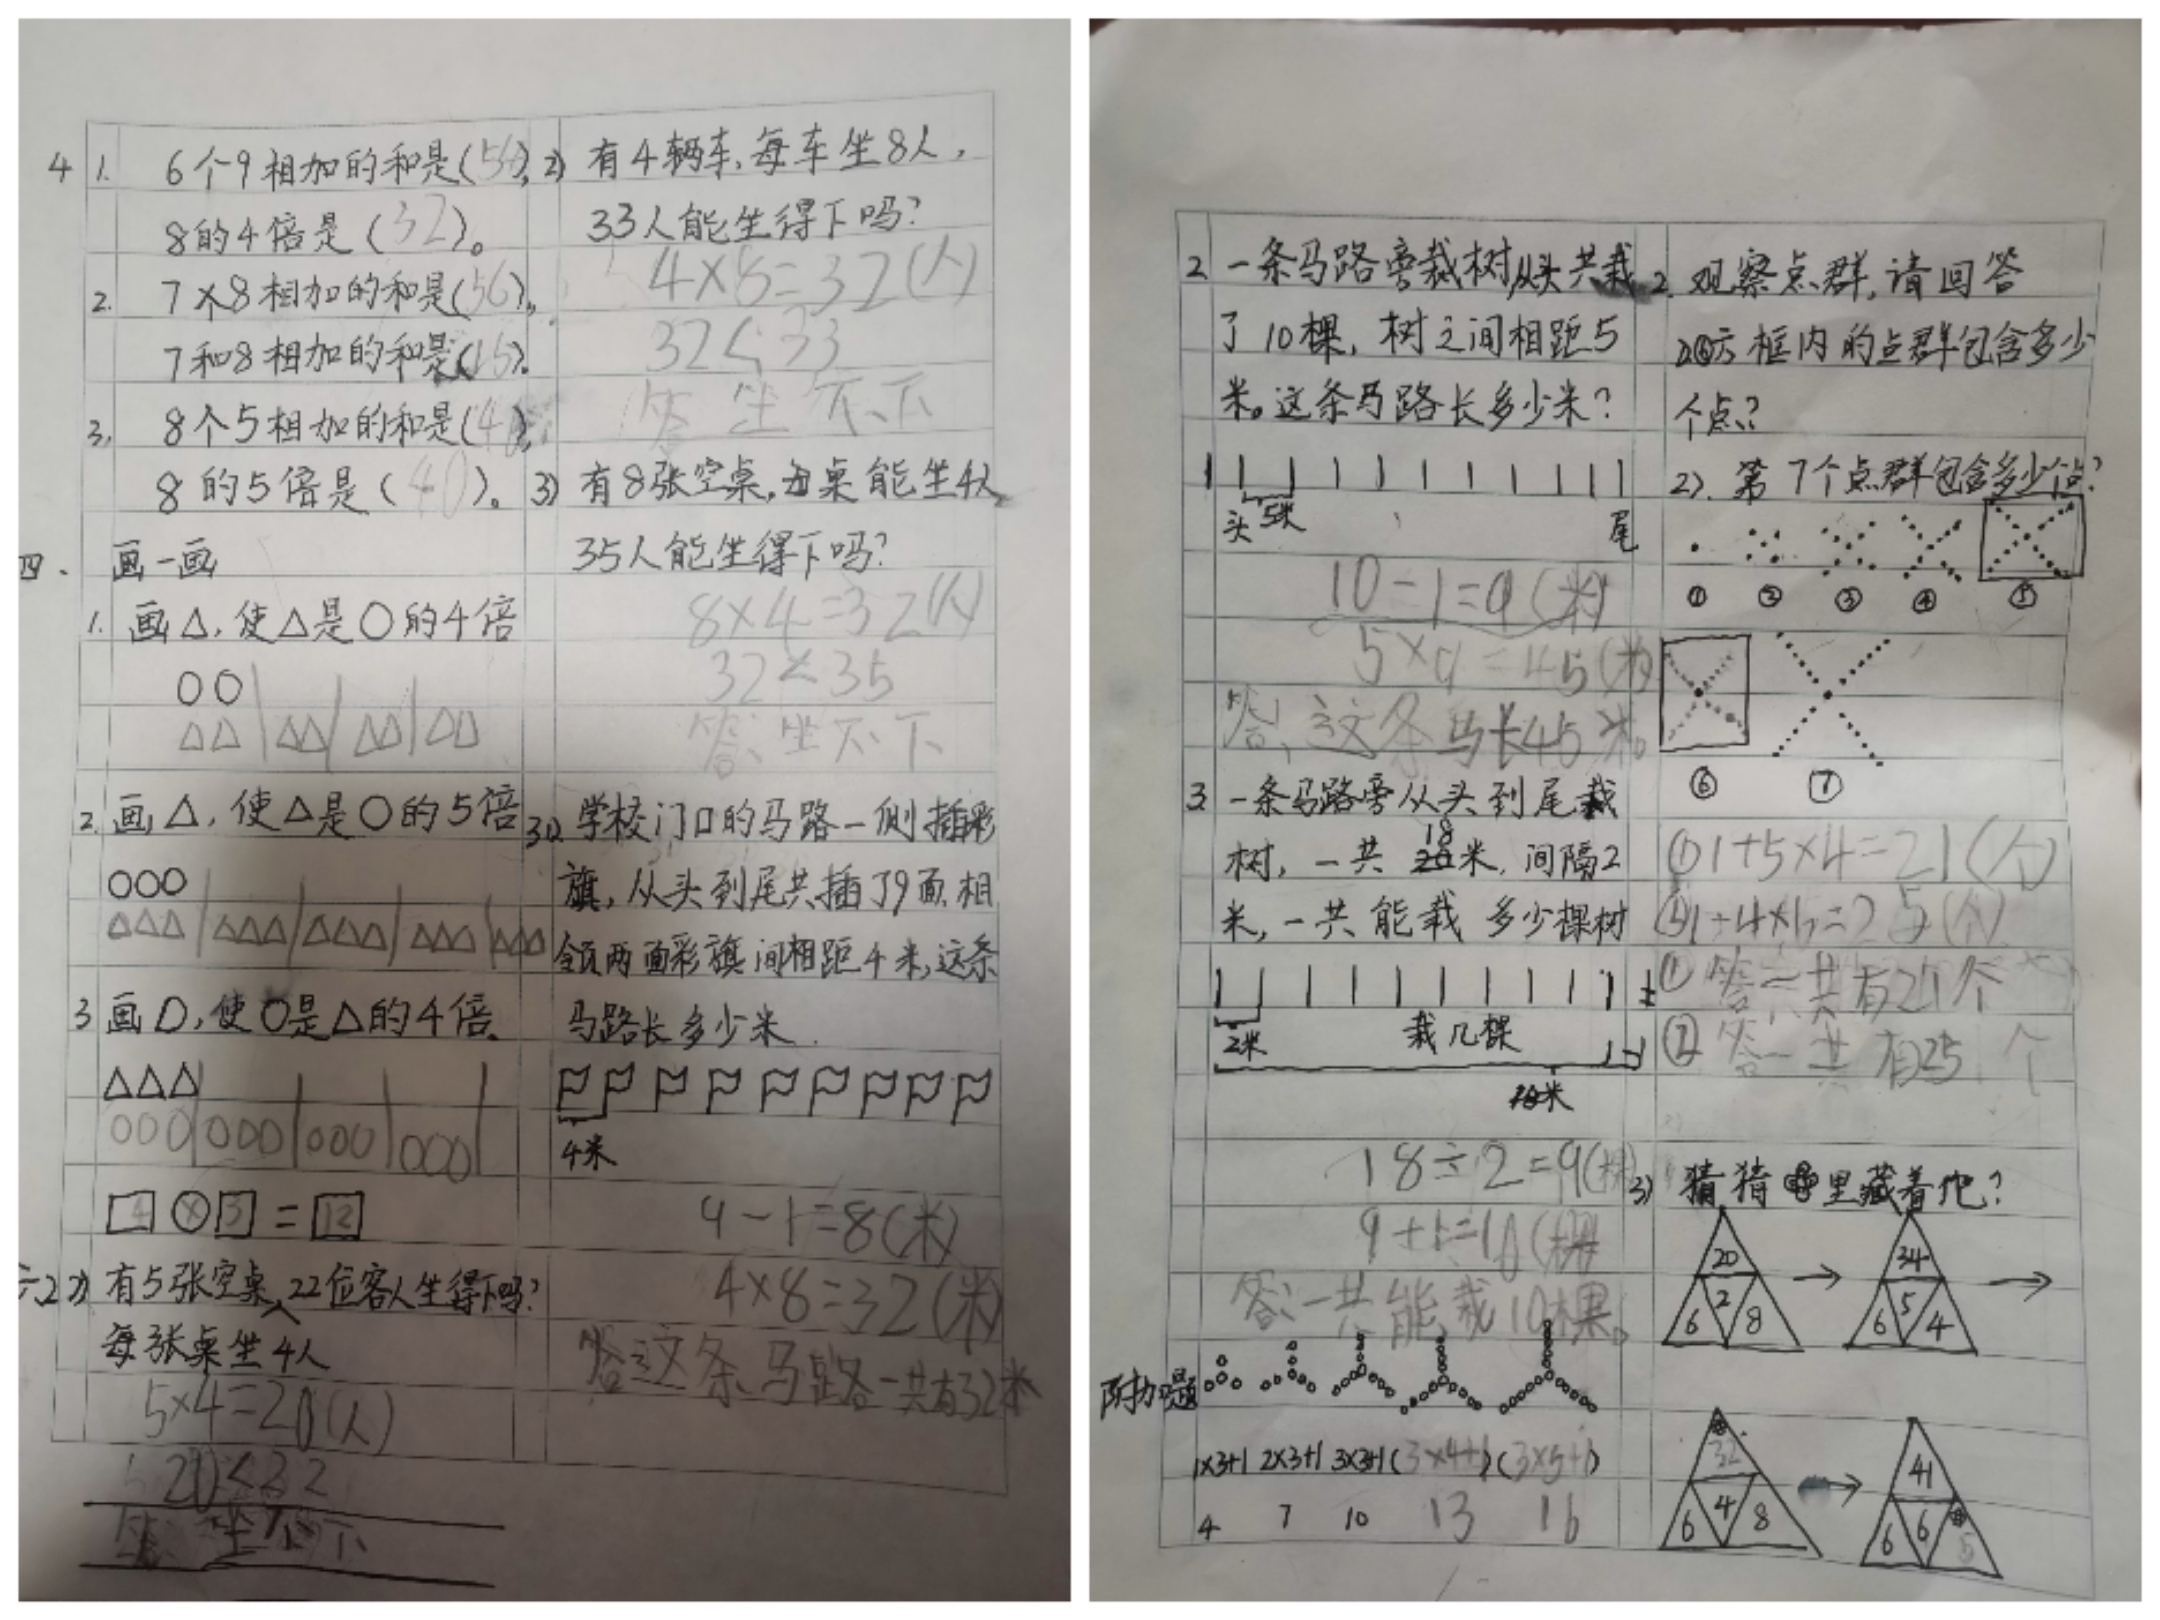 4 1. 6个9相加的和是(54),
8的4倍是(32)。
2. 7×8相加的和是(56),
7和8相加的和是(15).
3, 8个5相加的和是(40),
8的5倍是(40)。
四、画一画
1. 画△,使△是○的4倍
○○
△△ △△ △△ △△
2. 画△,使△是○的5倍
○○○
△△△ △△△ △△△ △△△ △△△
3 画○,使○是△的4倍.
△△△
○○○ ○○○ ○○○ ○○○
4 × 3 = 12
有5张空桌,22位客人坐得下吗?
每张桌坐4人
5×4=20(人)
20<22
答 坐不下
2) 有4辆车,每车坐8人,
33人能坐得下吗?
4×8=32(人)
32<33
答 坐不下
3) 有8张空桌,每桌能坐4人,
35人能坐得下吗?
8×4=32(人)
32<35
答、坐不下
学校门口的马路一侧插彩
旗,从头到尾共插了9面.相
领两面彩旗间相距4米,这条
马路长多少米.
4米
9-1=8(米)
4×8=32(米)
答这条马路一共有32米
2 一条马路旁栽树,从头共栽
了10棵,树之间相距5
米。这条马路长多少米?
头 5米 尾
10-1=9(米)
5×9=45(米)
答,这条马长45米。
3. 一条马路旁从头到尾栽
树,一共18米,间隔2
米,一共能栽多少棵树
2米 栽几棵
18÷2=9(棵)
9+1=10(棵)
答:一共能栽10棵。
附加题
1×3+1 2×3+1 3×3+1 (3×4+1) (3×5+1)
4 7 10 13 16
2. 观察点群,请回答
方框内的点群包含多少
个点?
2). 第7个点群包含多少个点?
① ② ③ ④ ⑤
⑥ ⑦
①1+5×4=21(个)
②1+4×6=25(个)
① 答一共有21个
② 答一共有25个
3) 猜猜里藏着他?
20 34
6 2 8 6 5 4
32 41
6 4 8 6 6 5